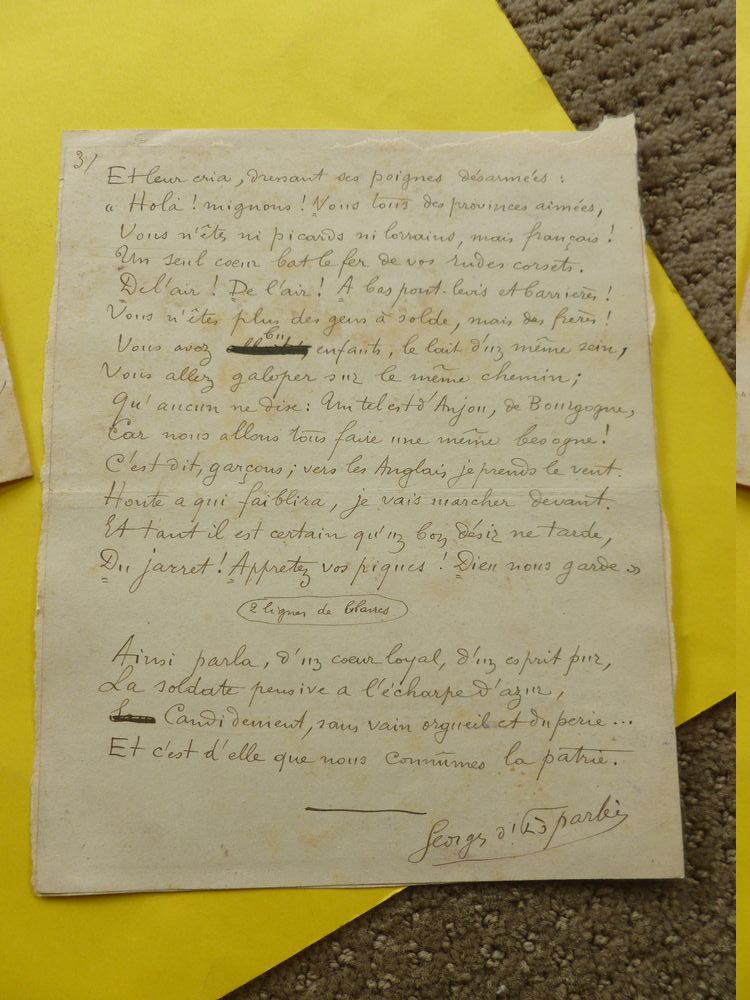 3/
Et leur cria, dressant ses poignes désarmées :
« Holà ! mignons ! Vous tous des provinces aimées,
Vous n'êtes ni picards ni lorrains, mais français !
Un seul coeur bat le fer de vos rudes corsets.
De l'air ! De l'air ! A bas pont-levis et barrières !
Vous n'êtes plus des gens à solde, mais des frères !
Vous avez bu enfants, le lait d'un même sein,
Vous allez galoper sur le même chemin ;
Qu'aucun ne dise : Un tel est d'Anjou, de Bourgogne,
Car nous allons tous faire une même besogne !
C'est dit, garçons ; vers les Anglais je prends le vent.
Honte a qui faiblira, je vais marcher devant.
Et tant il est certain qu'un bon désir ne tarde,
Du jarret ! Appretez vos piques ! Dieu nous garde »
2 lignes de blancs
Ainsi parla, d'un coeur loyal, d'un esprit pur,
La soldate pensive a l'écharpe d'azur,
Candidement, sans vain orgueil et duperie...
Et c'est d'elle que nous connûmes la patrie.
Georges d'Esparbès